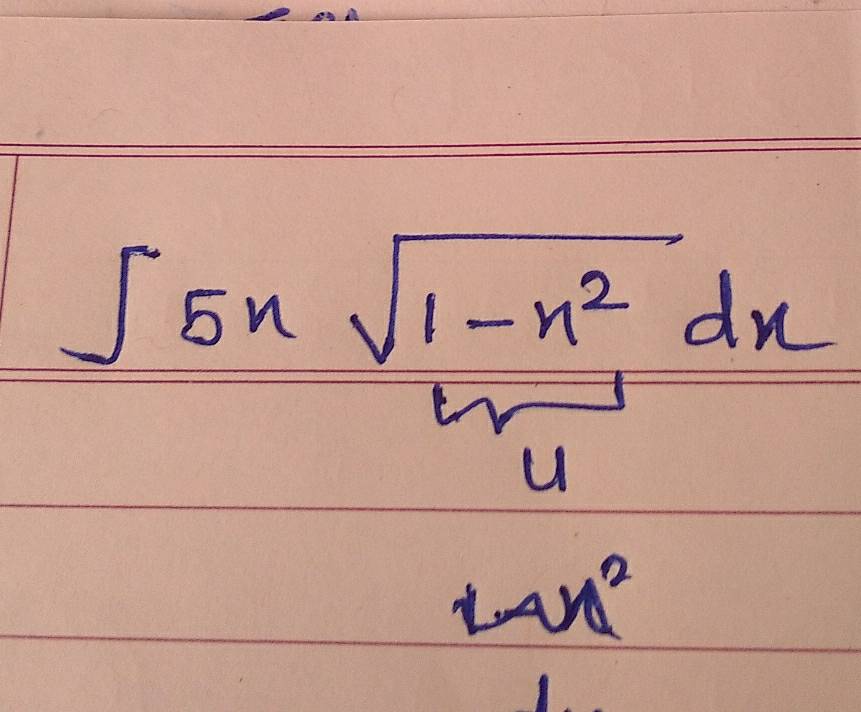 ∫ 5x √(1 - x²) dx
u